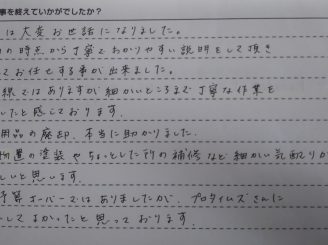 事を終えていかがでしたか？
は大変お世話になりました。
の時点から丁寧でわかりやすい説明をして頂き
てお任せする事が出来ました。
線ではありますが細かいところまで丁寧な作業を
したと感じております。
用品の廃却、本当に助かりました。
物置の塗装やちょっとした所の補修など細かい気配りが
しいと思います。
予算オーバーではありましたが、プロタイムズさんに
してよかったと思っております。